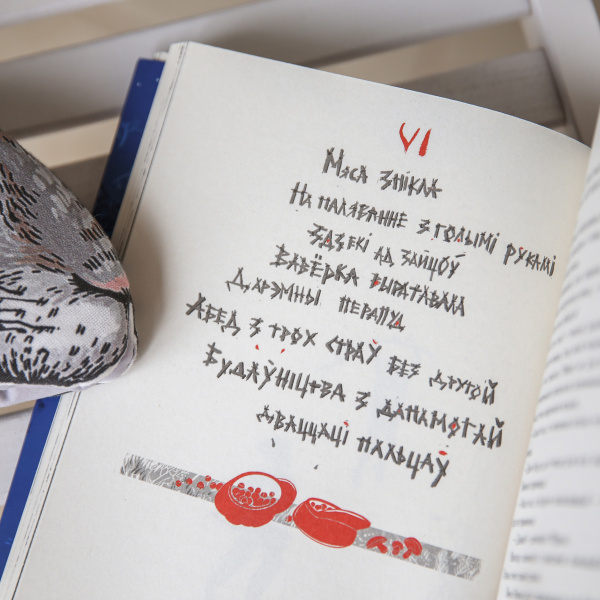 VI
Мяса знікла
На паляванне з голымі рукамі
Здзекі ад зайцоў
Вавёрка выратавала
Дарэмны перапуд
Абед з трох страў без другой
Будаўніцтва з дапамогай
дваццаці пальцаў